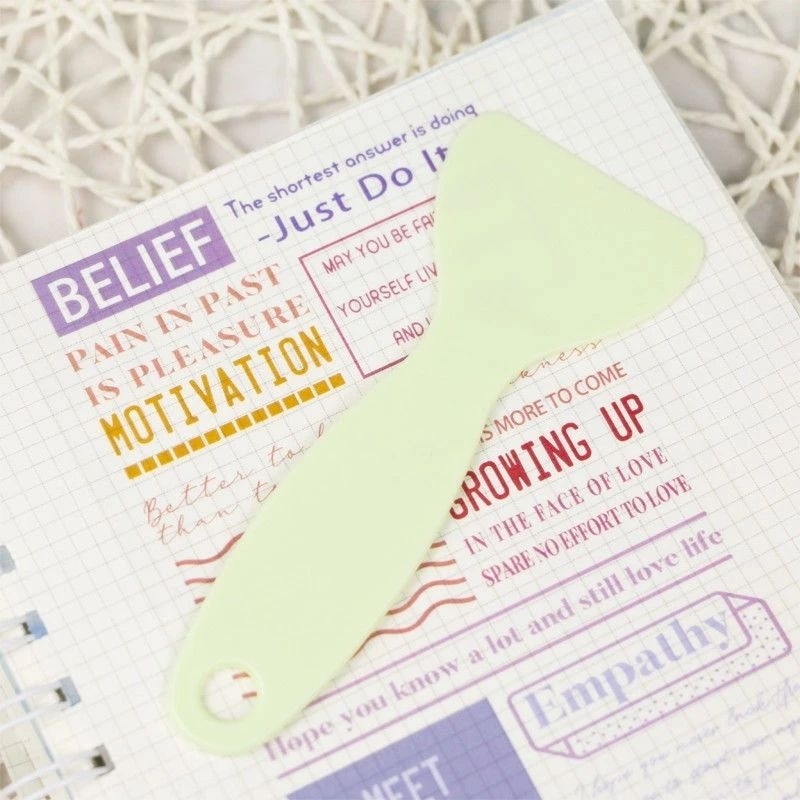 The shortest answer is doing
-Just Do It
BELIEF
PAIN IN PAST
IS PLEASURE
MOTIVATION
MAY YOU BE
YOURSELF
AND
Better
than
IS MORE TO COME
GROWING UP
IN THE FACE OF LOVE
SPARE NO EFFORT TO LOVE
Hope you know a lot and still love life
Empathy
MEET
I hope you never look